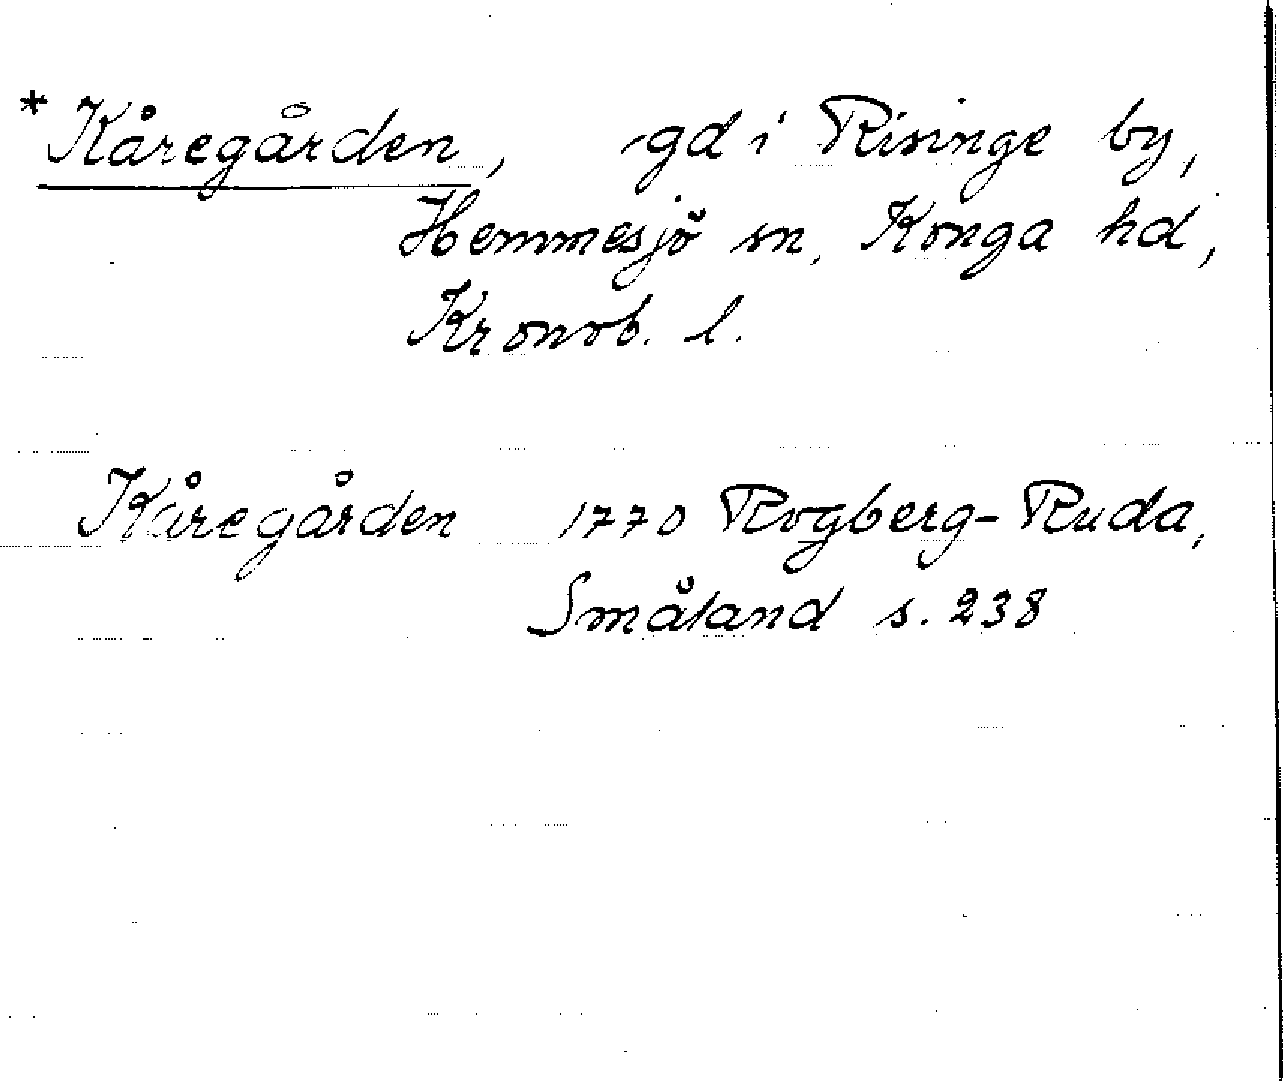 *Kåregården, gd i Risinge by,
Hemmesjö sn, Konga hd,
Kronob. l.
Kåregården 1770 Rogberg-Ruda,
Småland s. 238